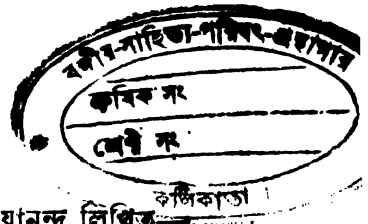 বঙ্গীয়-সাহিত্য-পরিষৎ-গ্রন্থাগার
ক্রমিক সং
শ্রেণী সং
কলিকাতা
য়ানন্দ লিখিত